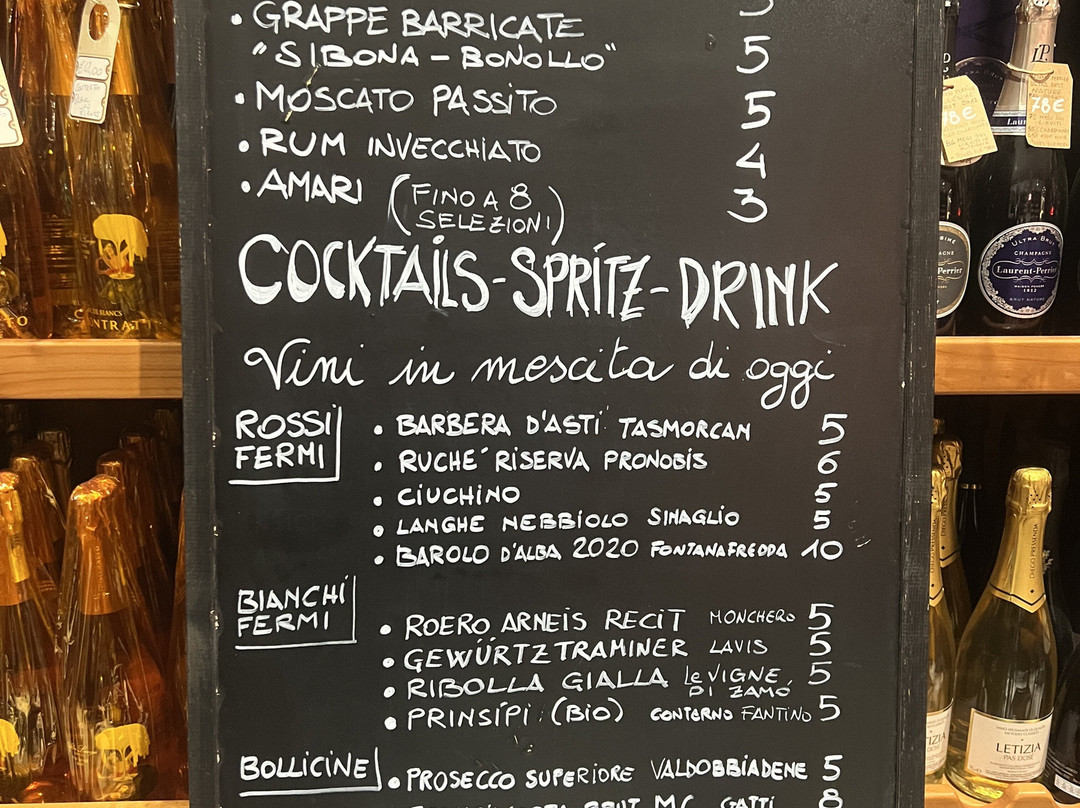 • GRAPPE BARRICATE
"SIBONA - BONOLLO" 5
• MOSCATO PASSITO 5
• RUM INVECCHIATO 4
• AMARI (FINO A 8 SELEZIONI) 3
COCKTAILS-SPRITZ-DRINK
Vini in mescita di oggi
ROSSI FERMI
• BARBERA D'ASTI TASMORCAN 5
• RUCHE' RISERVA PRONOBIS 6
• CIUCHINO 5
• LANGHE NEBBIOLO SINAGLIO 5
• BAROLO D'ALBA 2020 FONTANAFREDDA 10
BIANCHI FERMI
• ROERO ARNEIS RECIT MONCHERO 5
• GEWÜRTZTRAMINER LAVIS 5
• RIBOLLA GIALLA Le VIGNE DI ZAMÓ 5
• PRINSÍPI (BIO) CONTERNO FANTINO 5
BOLLICINE
• PROSECCO SUPERIORE VALDOBBIADENE 5
BRUT M.C. GATTI 8
78€
ULTRA BRUT
CHAMPAGNE
Laurent-Perrier
MAISON FONDÉE
1812
BRUT NATURE
DIEGO PRESSENDA
LETIZIA
PAS DOSÉ